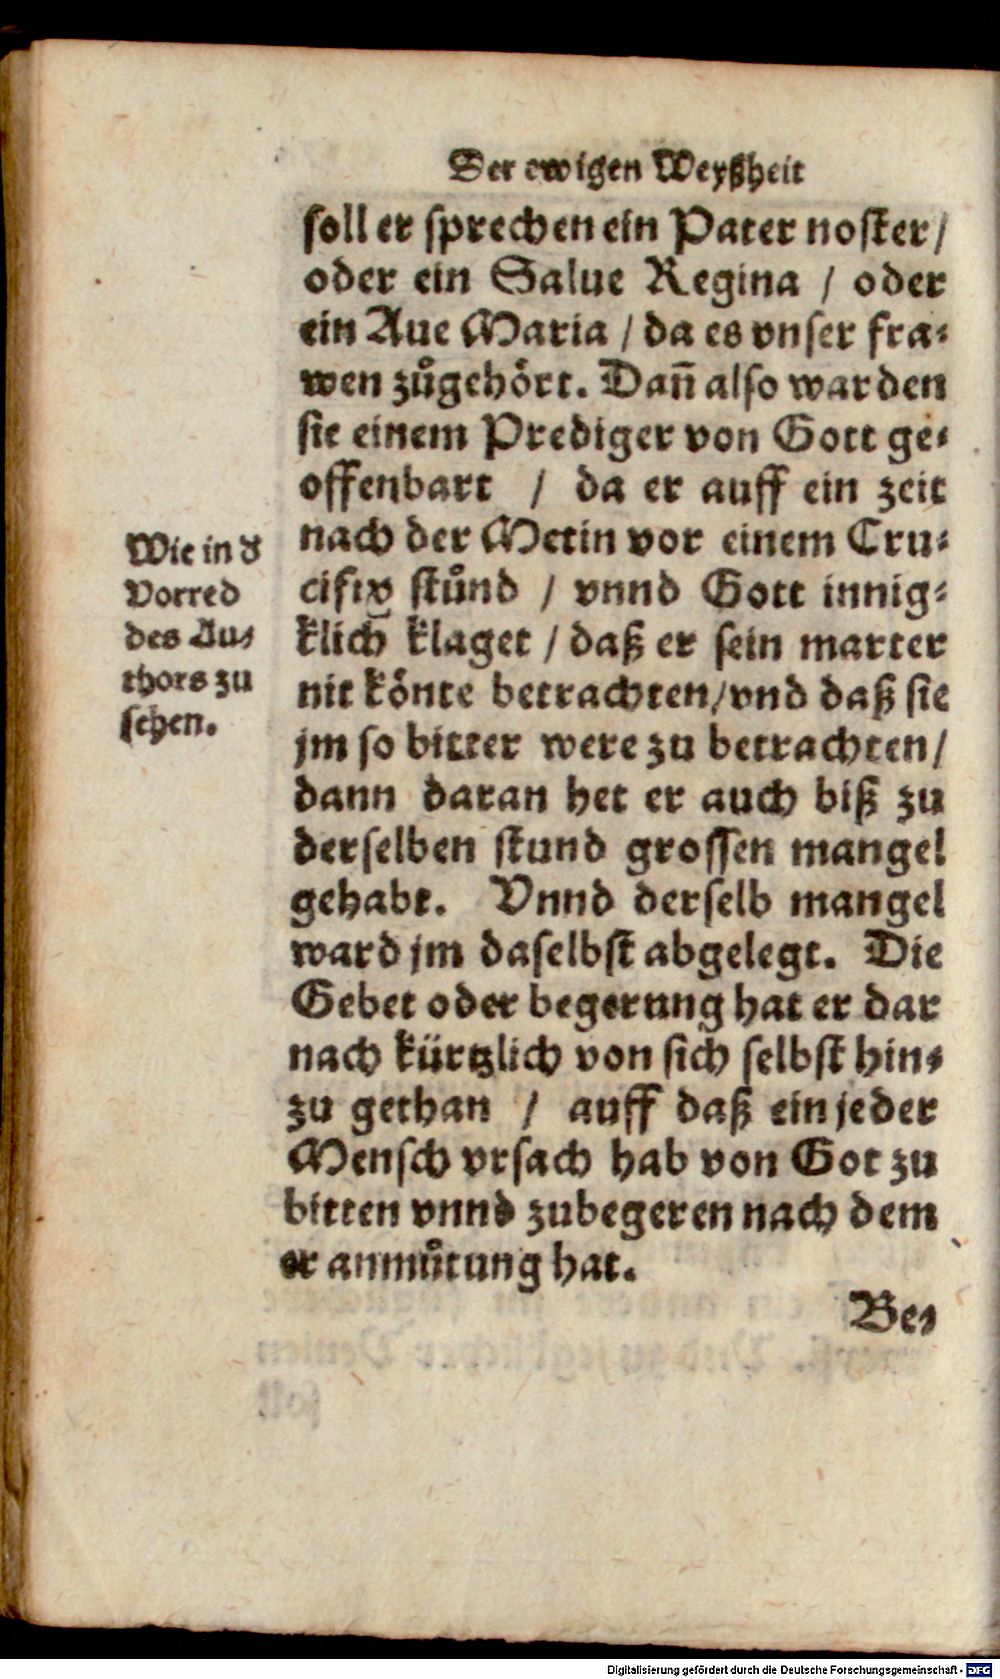 Der ewigen Weyßheit
soll er sprechen ein Pater noster /
oder ein Salue Regina / oder
ein Aue Maria / da es vnser fra-
wen zůgehört. Dañ also warden
sie einem Prediger von Gott ge-
offenbart / da er auff ein zeit
nach der Metin vor einem Cru-
cifix stůnd / vnnd Gott innig-
klich klaget / daß er sein marter
nit könte betrachten / vnd daß sie
jm so bitter were zu betrachten /
dann daran het er auch biß zu
derselben stund grossen mangel
gehabt. Vnnd derselb mangel
ward jm daselbst abgelegt. Die
Gebet oder begerung hat er dar
nach kürtzlich von sich selbst hin-
zu gethan / auff daß ein jeder
Mensch vrsach hab von Got zu
bitten vnnd zubegeren nach dem
er anmůtung hat.
Be-
Wie in d
Vorred
des Au-
thors zu
sehen.
Digitalisierung gefördert durch die Deutsche Forschungsgemeinschaft - DFG